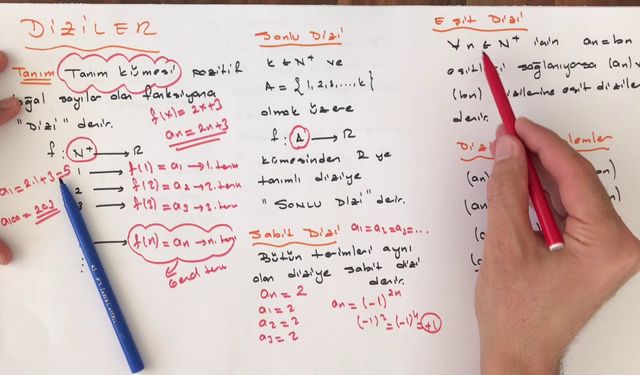 DİZİLER
Tanım Tanım kümesi pozitif
doğal sayılar olan fonksiyona
"Dizi" denir.
f(x) = 2x+3
an = 2n+3
f: N⁺ → R
a₁ = 2.1+3 = 5
a₁₀₀ = 203
1 → f(1) = a₁ → 1. term
2 → f(2) = a₂ → 2. term
3 → f(3) = a₃ → 3. term
→ f(n) = an → n. term
Genel term
Sonlu Dizi
k ∈ N⁺ ve
A = {1, 2, 3, ..., k}
olmak üzere
f: A → R
kümesinden R ye
tanımlı diziye
"SONLU DİZİ" denir.
Sabit Dizi a₁ = a₂ = a₃ = ...
Bütün terimleri aynı
olan diziye sabit dizi
denir.
an = 2
a₁ = 2
a₂ = 2
a₃ = 2
an = (-1)²ⁿ
(-1)² = (-1)⁴ = +1
Eşit Dizi
∀n ∈ N⁺ için an = bn
eşitliği sağlanıyorsa (an) v
(bn) dizilerine eşit diziler
denir.